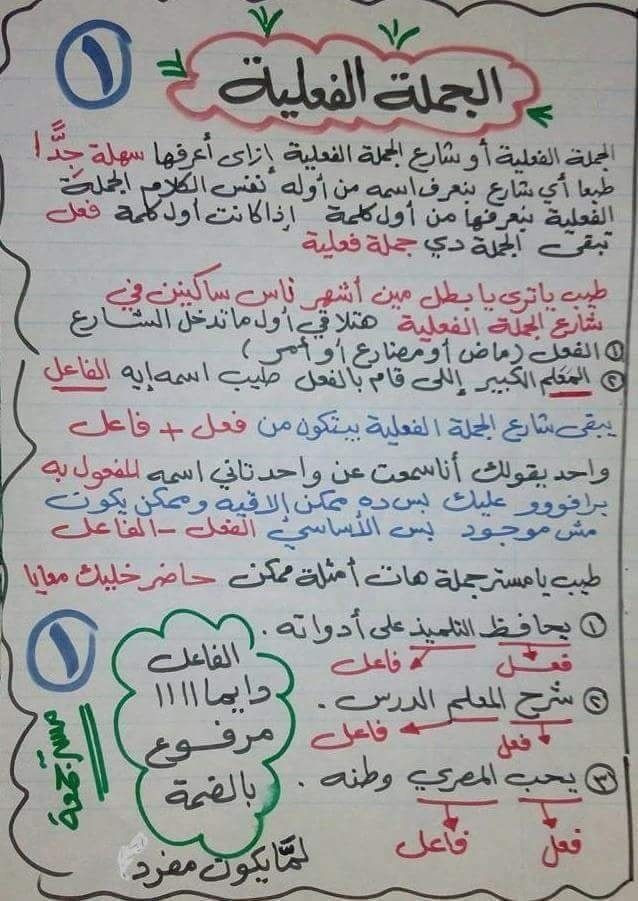 ١
الجملة الفعلية
الجملة الفعلية أو شارع الجملة الفعلية إزاى أعرفها سهلة جدًّا!
طبعا أي شارع بنعرف اسمه من أوله نفس الكلام الجملة
الفعلية بنعرفها من أول كلمة إذا كانت أول كلمة فعل
تبقى الجملة دي جملة فعلية
طيب ياترى يا بطل مين أشهر ناس ساكنين في
شارع الجملة الفعلية هتلاقي أول ما تدخل الشارع
① الفعل (ماض أو مضارع أو أمر)
② المعلم الكبير إللى قام بالفعل طيب اسمه إيه الفاعل
يبقى شارع الجملة الفعلية بيتكون من فعل + فاعل
واحد يقولك أنا سمعت عن واحد تاني اسمه المفعول به
برافووو عليك بس ده ممكن ألاقيه وممكن يكون
مش موجود بس الأساسي الفعل - الفاعل
طيب يا مستر جملة هات أمثلة ممكن حاضر خليك معايا
① يحافظ التلميذ على أدواته.
فعل فاعل
② شرح المعلم الدرس.
فعل فاعل
③ يحب المصري وطنه.
فعل فاعل
الفاعل
دايما ١١١١
مرفوع
بالضمة
لمَّا يكون مفرد
١
مستر جمعة